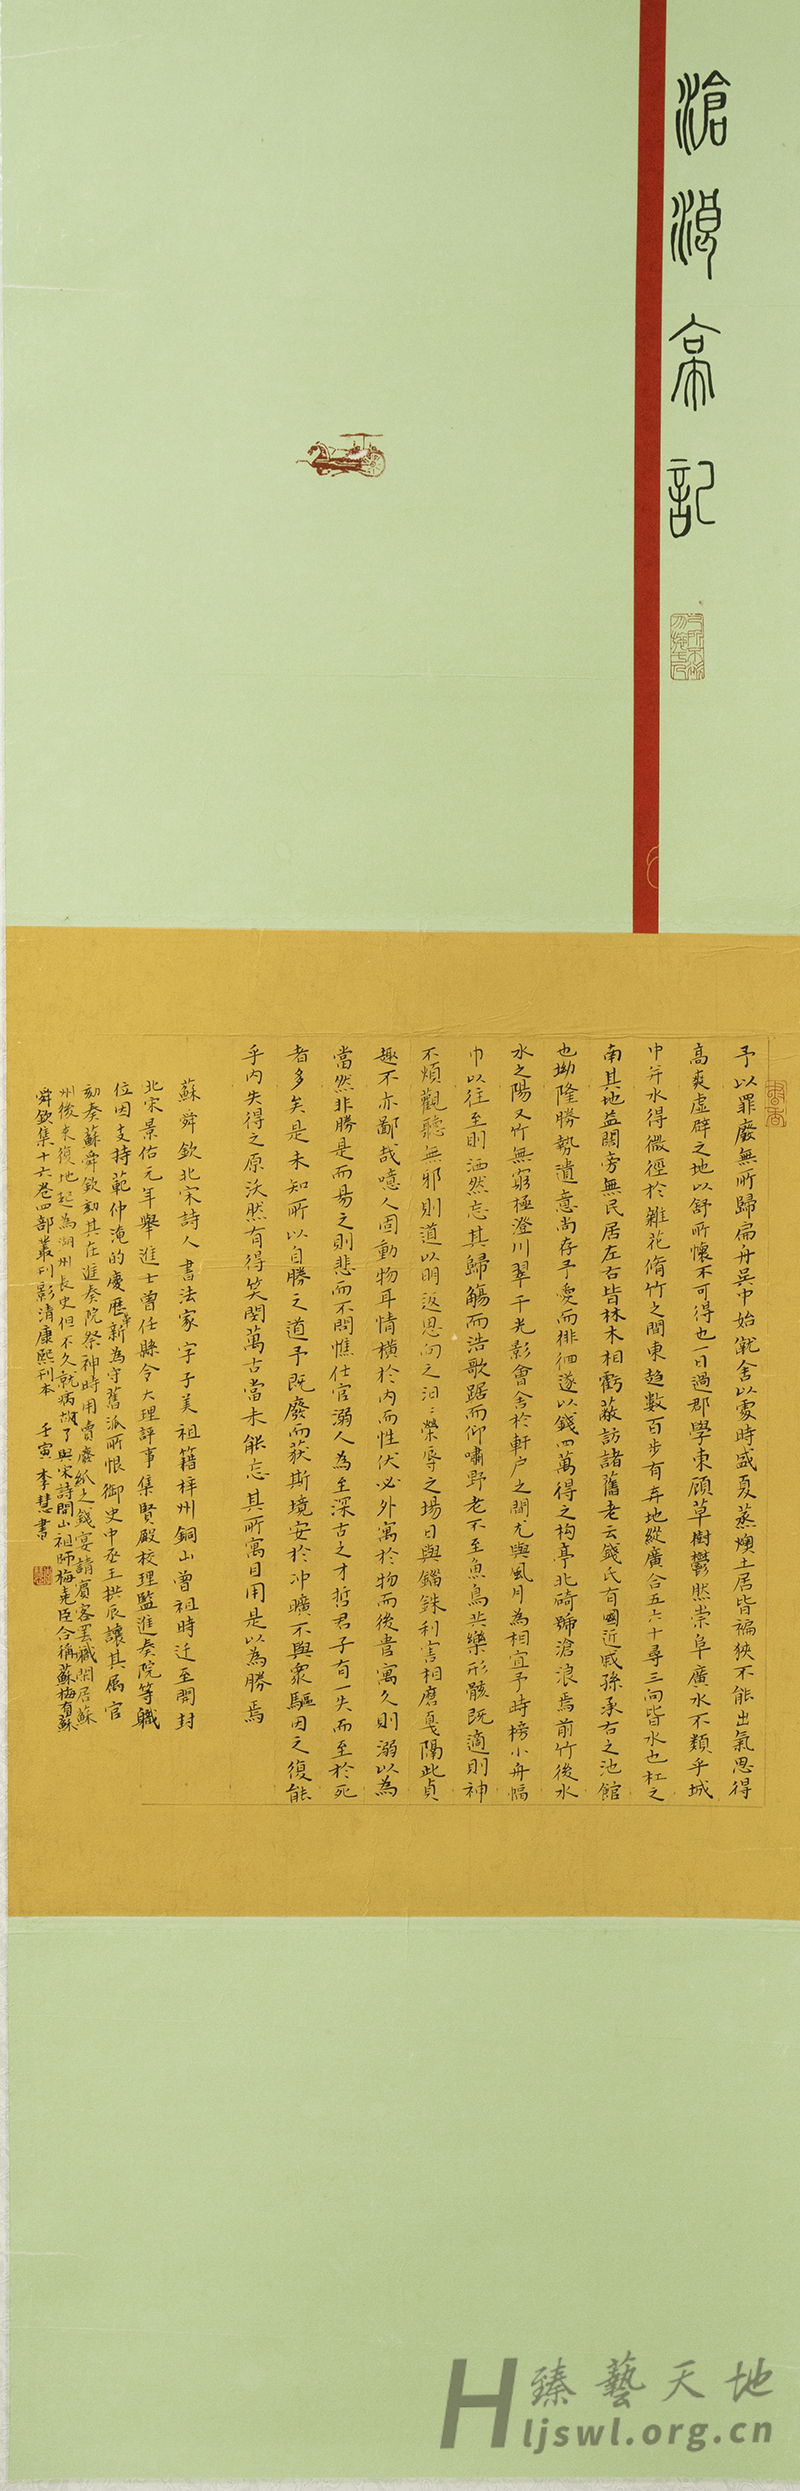 滄浪亭記
予以罪廢無所歸扁舟吳中始僦舍以處時盛夏蒸燠土居皆褊狹不能出氣思得
高爽虛辟之地以舒所懷不可得也一日過郡學東顧草樹鬱然崇阜廣水不類乎城
中并水得微徑於雜花脩竹之間東趨數百步有弃地縱廣合五六十尋三向皆水也杠之
南其地益闊旁無民居左右皆林木相虧蔽訪諸舊老云錢氏有國近戚孫承右之池館
也坳隆勝勢遺意尚存予愛而徘徊遂以錢四萬得之构亭北碕號滄浪焉前竹後水
水之陽又竹無窮極澄川翠千光影會舍於軒户之間尤與風月為相宜予時榜小舟幅
巾以往至則洒然忘其歸觴而浩歌踞而仰嘯野老不至魚鳥共樂形骸既適則神
不煩觀聽無邪則道以明返思向之汩ミ榮辱之場日與錙銖利害相磨戛隔此貞
趣不亦鄙哉噫人固動物耳情橫於內而性伏必外寓於物而後遣寓久則溺以為
當然非勝是而易之則悲而不開惟仕官溺人為至深古之才哲君子有一失而至於死
者多矣是未知所以自勝之道予既廢而获斯境安於冲曠不與衆驅因之復能
乎內失得之原沃然有得笑閔萬古當未能忘其所寓目用是以為勝焉
蘇舜欽北宋詩人書法家字子美祖籍梓州銅山曾祖時迁至開封
北宋景佑元年舉進士曾任縣令大理評事集賢殿校理監進奏院等職
位因支持範仲淹的慶歷革新為守舊派所恨御史中丞王拱辰讓其属官
劾奏蘇舜欽劾其在進奏院祭神時用賣廢紙之錢宴請賓客罢職閑居蘇
州後来復地起為湖州長史但不久就病故了與宋詩開山祖師梅堯臣合稱蘇梅有蘇
舜欽集十六卷四部叢刊影清康熙刊本 壬寅李慧書
臻藝天地
Hljswl.org.cn